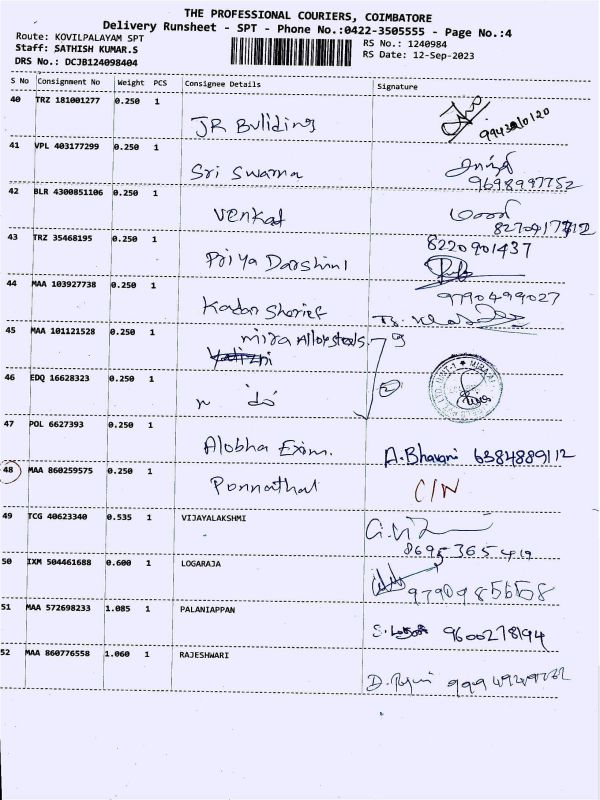 THE PROFESSIONAL COURIERS, COIMBATORE
Delivery Runsheet - SPT - Phone No.:0422-3505555 - Page No.:4
Route: KOVILPALAYAM SPT
RS No.: 1240984
Staff: SATHISH KUMAR.S
RS Date: 12-Sep-2023
DRS No.: DCJB124098404
S No Consignment No Weight PCS Consignee Details Signature
40 TRZ 181001277 0.250 1
JR Buliding
41 VPL 403177299 0.250 1
Sri Swarna
9698997752
42 BLR 4300851106 0.250 1
Venkat
43 TRZ 35468195 0.250 1 8220901437
Priya Darshini
44 MAA 103927738 0.250 1 9790499027
Kadar Sherief
45 MAA 101121528 0.250 1 mira Alloy steels.
46 EDQ 16628323 0.250 1
47 POL 6627393 0.250 1
Alobha Exim. A.Bhavani 6384889112
48 MAA 860259575 0.250 1
Ponnathal C/N
49 TCG 40623340 0.535 1 VIJAYALAKSHMI
8695365419
50 IXM 504461688 0.600 1 LOGARAJA
51 MAA 572698233 1.085 1 PALANIAPPAN
9600278194
52 MAA 860776558 1.060 1 RAJESHWARI